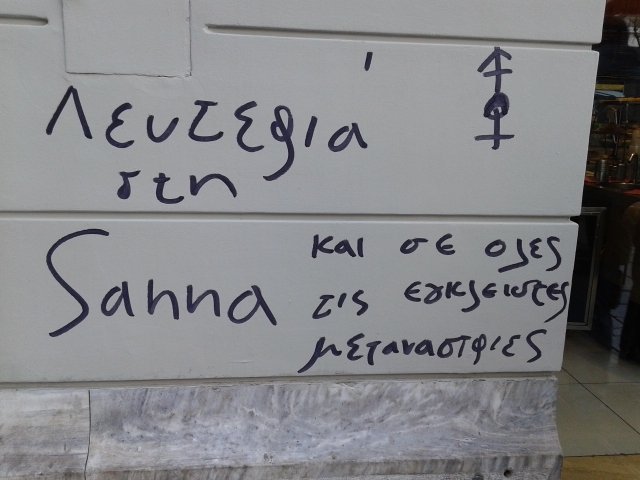 Λευτεριά
στη
Sanna
και σε ολες
τις εγκλειστες
μεταναστριες